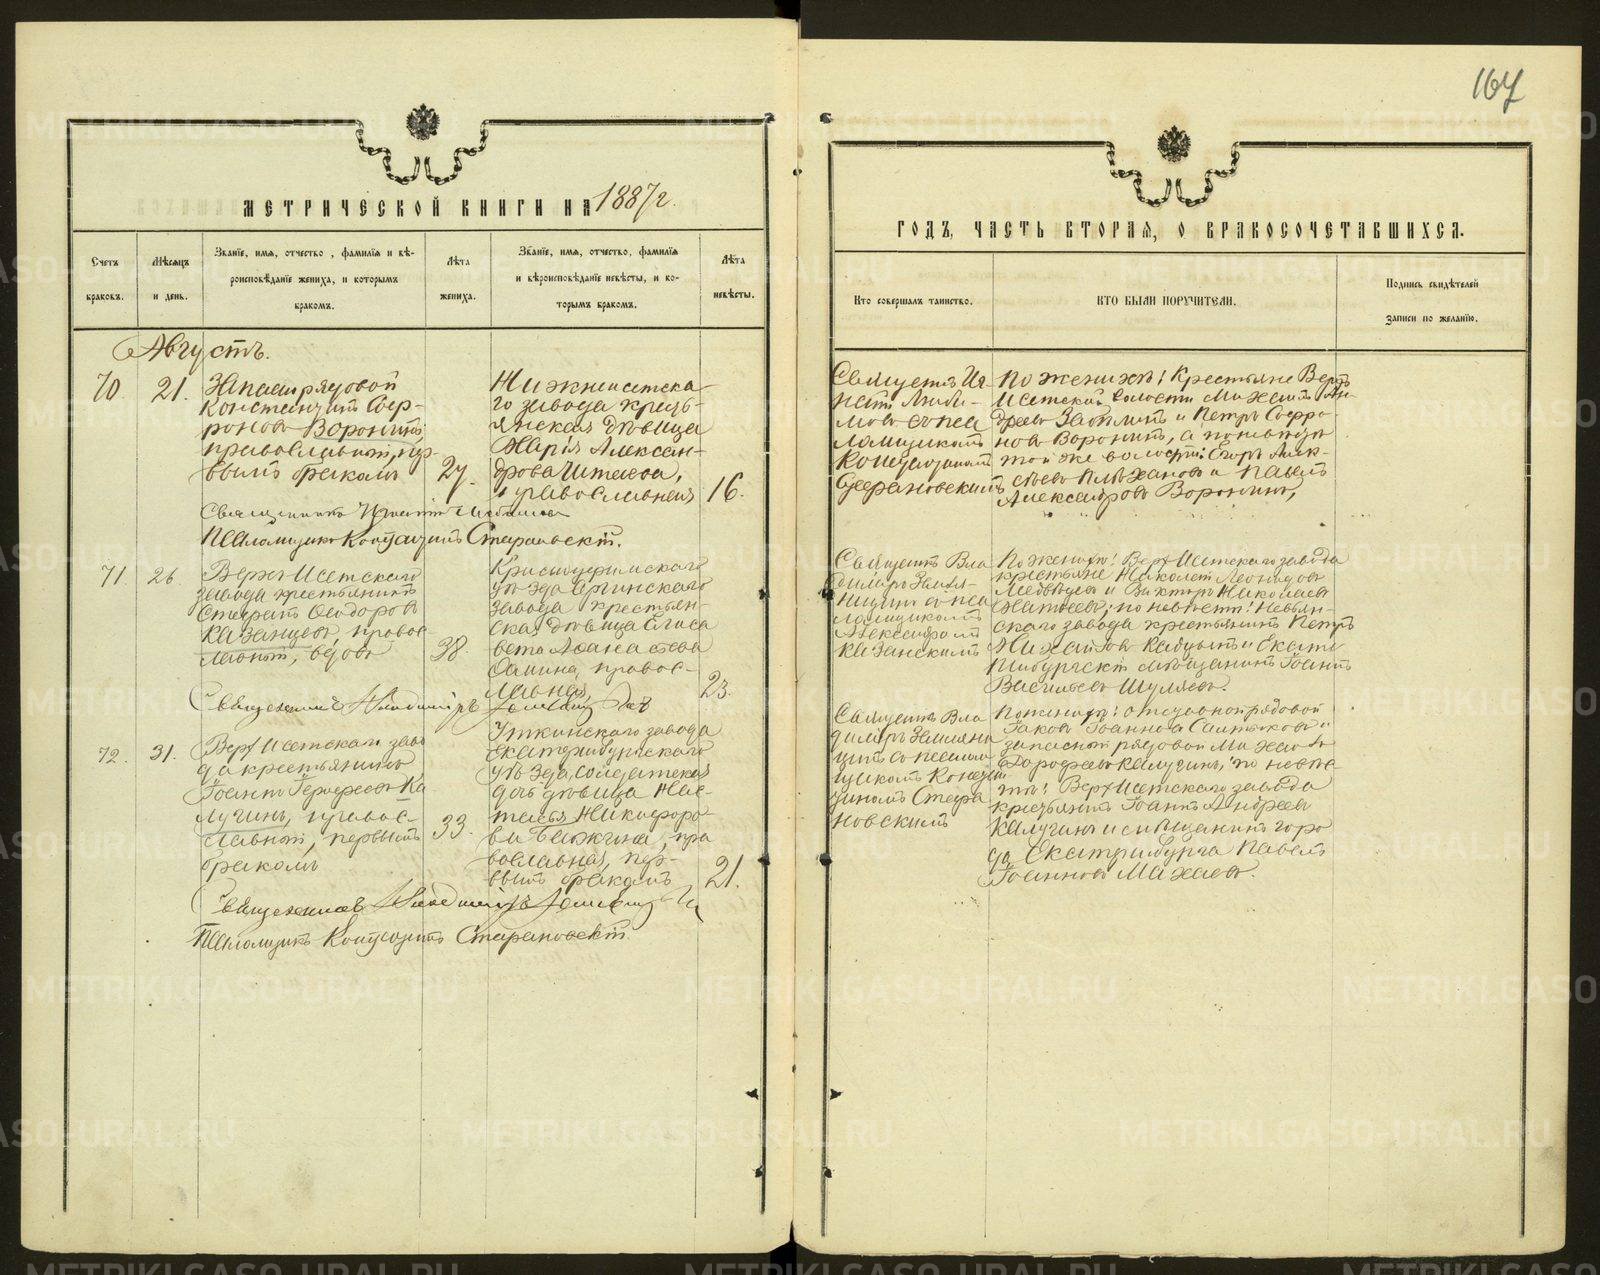 167
МЕТРИЧЕСКОЙ КНИГИ НА 1887 г.
Счетъ браковъ.
Мѣсяцъ и день.
Званіе, имя, отчество, фамилія и вѣ-
роисповѣданіе жениха, и которымъ
бракомъ.
Лѣта жениха.
Званіе, имя, отчество, фамилія
и вѣроисповѣданіе невѣсты, и ко-
торымъ бракомъ.
Лѣта невѣсты.
Августъ.
70.
21.
Запасн рядовой
Константинъ Соф-
роновъ Воронинъ,
православный, пер-
вымъ бракомъ
27.
Нижнеисетска-
го завода кресть-
янская дѣвица
Марія Алексан-
дрова
православная
16.
Священникъ Игнатій
Псаломщикъ Константинъ Стефановскій.
71
26.
Верхъ Исетскаго
завода крестьянинъ
Стефанъ Ѳеодоровъ
Казанцевъ, правос-
лавный, вдовъ
38.
Красноуфимскаго
уѣзда
завода крестьян-
ская дѣвица Елиса
вета Аѳанасьева
правос-
лавная,
23.
Священникъ Владиміръ
72.
31.
Верх Исетскаго заво
да крестьянинъ
Іоаннъ Ка
лугинъ, правос-
лавный, первымъ
бракомъ
33.
Уткинскаго завода
Екатеринбургскаго
уѣзда, солдатская
дочь дѣвица Нас-
тасья Никифоро-
ва пра
вославная, пер-
вымъ бракомъ
21.
Священникъ Владиміръ
Псаломщикъ Константинъ Стефановскій
ГОДЪ, ЧАСТЬ ВТОРАЯ, О БРАКОСОЧЕТАВШИХСЯ.
Кто совершалъ таинство.
КТО БЫЛИ ПОРУЧИТЕЛИ.
Подпись свидѣтелей
записи по желанію.
Священн Иг-
натій
съ пса
ломщикомъ
Константиномъ
Стефановскимъ
По женихѣ: Крестьяне Верхъ
Исетской волости Михаилъ Ан
дреевъ и Петръ Софро-
новъ Воронинъ, а по невѣстѣ
той же волости: Егоръ Алек-
сѣевъ Плѣхановъ и Павелъ
Александровъ Воронинъ,
Священъ Вла
диміръ Земля-
ницынъ съ пса
ломщикомъ
Александромъ
Казанскимъ
По женихѣ: Верх Исетскаго завода
крестьяне Николай Леонидовъ
Медвѣдевъ и Викторъ Николаевъ
по невѣстѣ: Невьян-
скаго завода крестьянинъ Петръ
Михайловъ и Екате
ринбургскій мѣщанинъ Іоаннъ
Васильевъ Шуляевъ.
Священъ Вла
диміръ Земляни
цынъ съ псалом
щикомъ Констан
тиномъ Стефа
новскимъ
По женихѣ: отставной рядовой
Іаковъ Іоанновъ Салтыковъ и
запасной рядовой Михаилъ
Дорофеевъ Калугинъ, по невѣс-
тѣ: Верх Исетскаго завода
крестьянинъ Іоаннъ Андреевъ
Калугинъ и мѣщанинъ горо
да Екатеринбурга Павелъ
Іоанновъ Махаевъ.